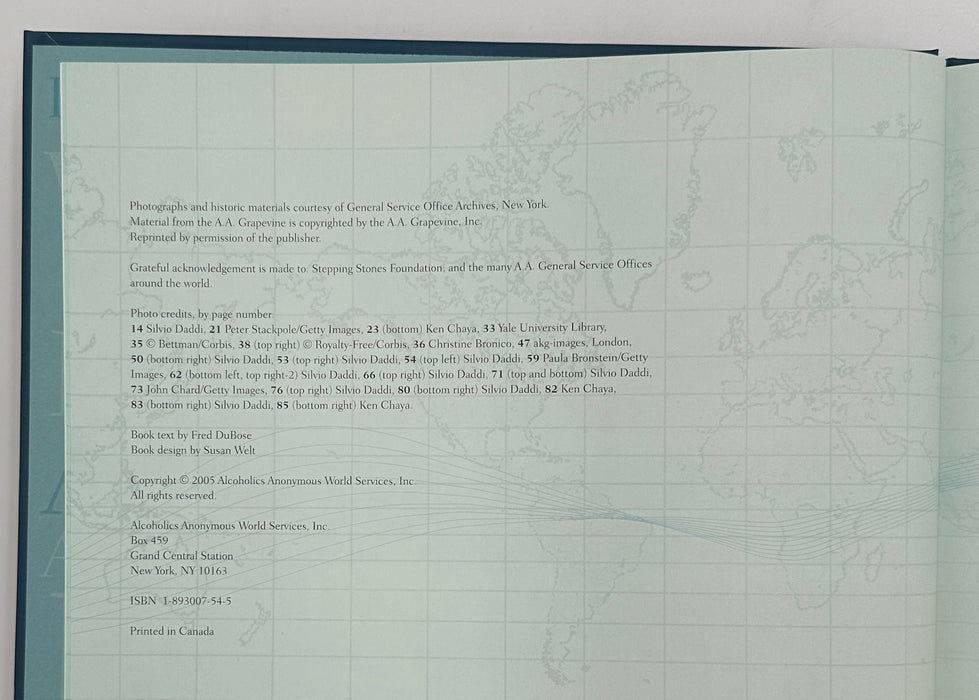 Photographs and historic materials courtesy of General Service Office Archives, New York.
Material from the A.A. Grapevine is copyrighted by the A.A. Grapevine, Inc.
Reprinted by permission of the publisher.
Grateful acknowledgement is made to: Stepping Stones Foundation; and the many A.A. General Service Offices
around the world.
Photo credits, by page number:
14 Silvio Daddi, 21 Peter Stackpole/Getty Images, 23 (bottom) Ken Chaya, 33 Yale University Library,
35 © Bettman/Corbis, 38 (top right) © Royalty-Free/Corbis, 36 Christine Bronico, 47 akg-images, London,
50 (bottom right) Silvio Daddi, 53 (top right) Silvio Daddi, 54 (top left) Silvio Daddi, 59 Paula Bronstein/Getty
Images, 62 (bottom left, top right-2) Silvio Daddi, 66 (top right) Silvio Daddi, 71 (top and bottom) Silvio Daddi,
73 John Chard/Getty Images, 76 (top right) Silvio Daddi, 80 (bottom right) Silvio Daddi, 82 Ken Chaya,
83 (bottom right) Silvio Daddi, 85 (bottom right) Ken Chaya.
Book text by Fred DuBose
Book design by Susan Welt
Copyright © 2005 Alcoholics Anonymous World Services, Inc.
All rights reserved.
Alcoholics Anonymous World Services, Inc.
Box 459
Grand Central Station
New York, NY 10163
ISBN 1-893007-54-5
Printed in Canada